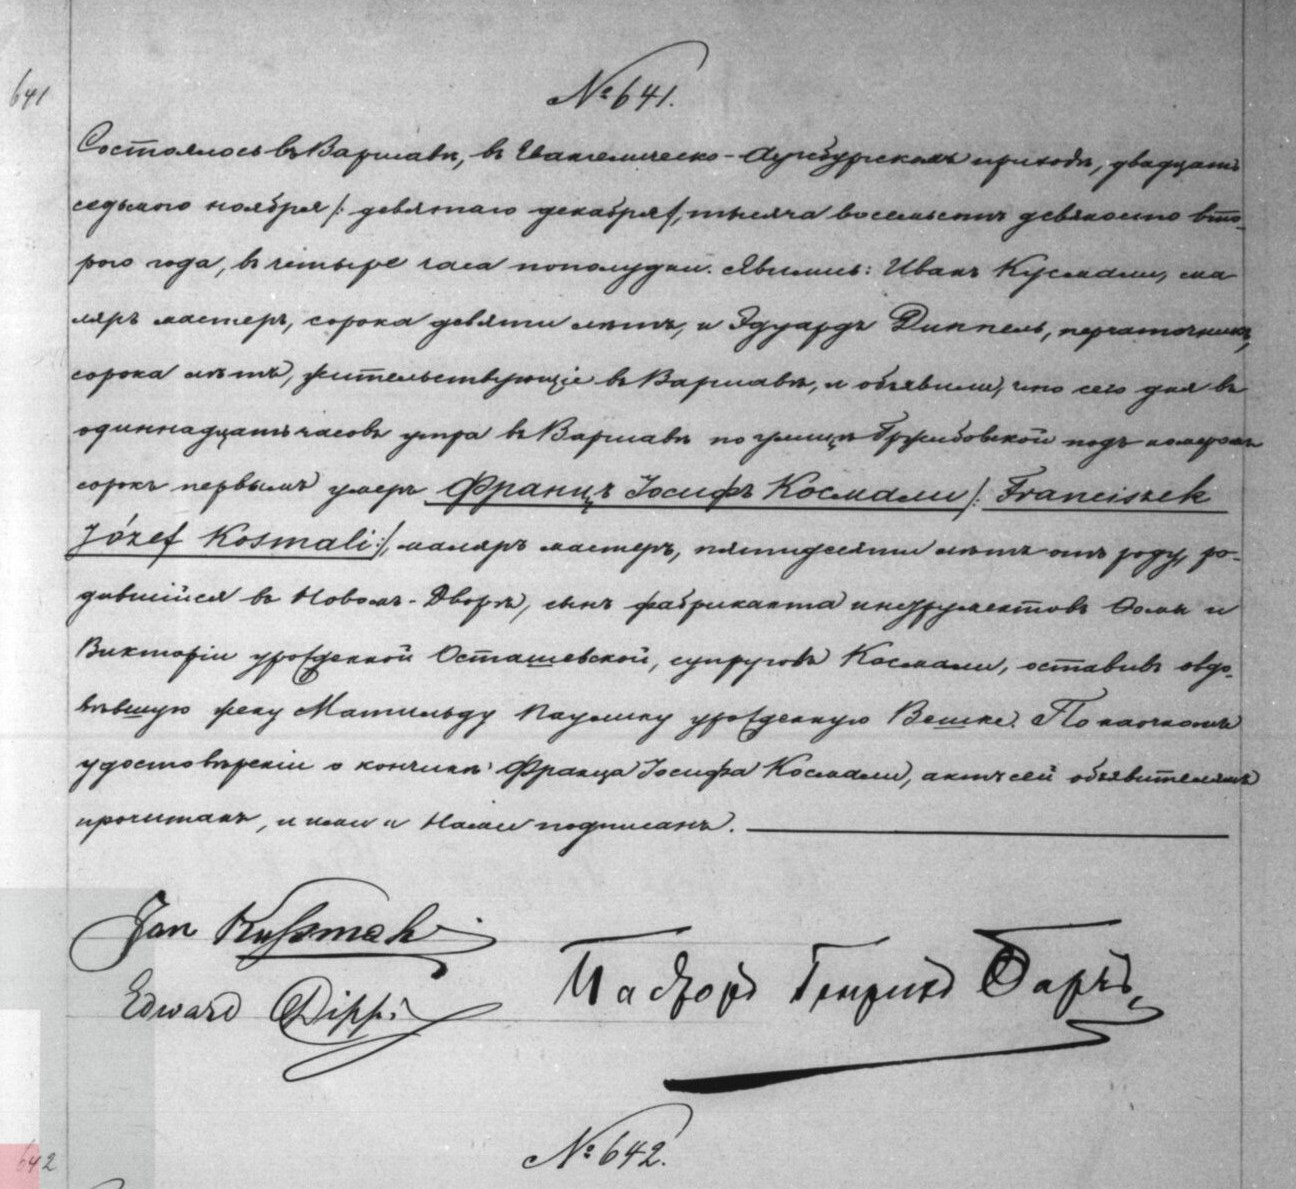 641
№ 641.
Состоялось въ Варшавѣ, въ Евангелическо-Аугсбургскомъ приходѣ, двадцать
седьмого ноября /: девятаго декабря :/, тысяча восемьсотъ девяносто вто-
рого года, въ четыре часа пополудни. Явились: Иванъ Кусмали, ма
ляръ мастеръ, сорока девяти лѣтъ, и Эдуардъ Диппель, перчаточникъ,
сорока лѣтъ, жительствующіе въ Варшавѣ, и объявили, что сего дня въ
одиннадцать часовъ утра въ Варшавѣ по улицѣ Гржибовской подъ номеромъ
сорокъ первымъ умеръ Францъ Іосифъ Космали /: Franciszek
Józef Kosmali :/, маляръ мастеръ, пятидесяти лѣтъ отъ роду, ро-
дившійся въ Новомъ-Дворѣ, сынъ фабриканта инструментовъ Ѳомы и
Викторіи урожденной Осташевской, супруговъ Космали, оставивъ овдо-
вѣвшую жену Матильду Паулину урожденную Вешке. По наочномъ
удостовѣреніи о кончинѣ Франца Іосифа Космали, актъ сей объявителямъ
прочитанъ, и ими и Нами подписанъ.
Jan Kussmali
Edward Dippel
Пасторъ Генрихъ
№ 642.
642